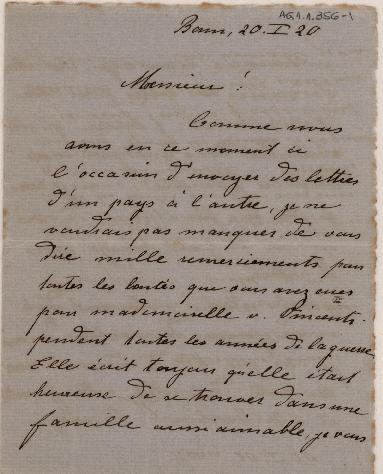 AG.1.1.356-1
Bonn, 20. I 20
Monsieur!
Comme nous
avons en ce moment ci
l'occasion d'envoyer des lettres
d'un pays à l'autre, je ne
voudrais pas manquer de vous
dire mille remerciements pour
toutes les bontés que vous avez eues
pour mademoiselle v.
pendent toutes les années de la guerre.
Elle écrit toujours qu'elle était
heureuse de se trouver dans une
famille aussi aimable, je vous